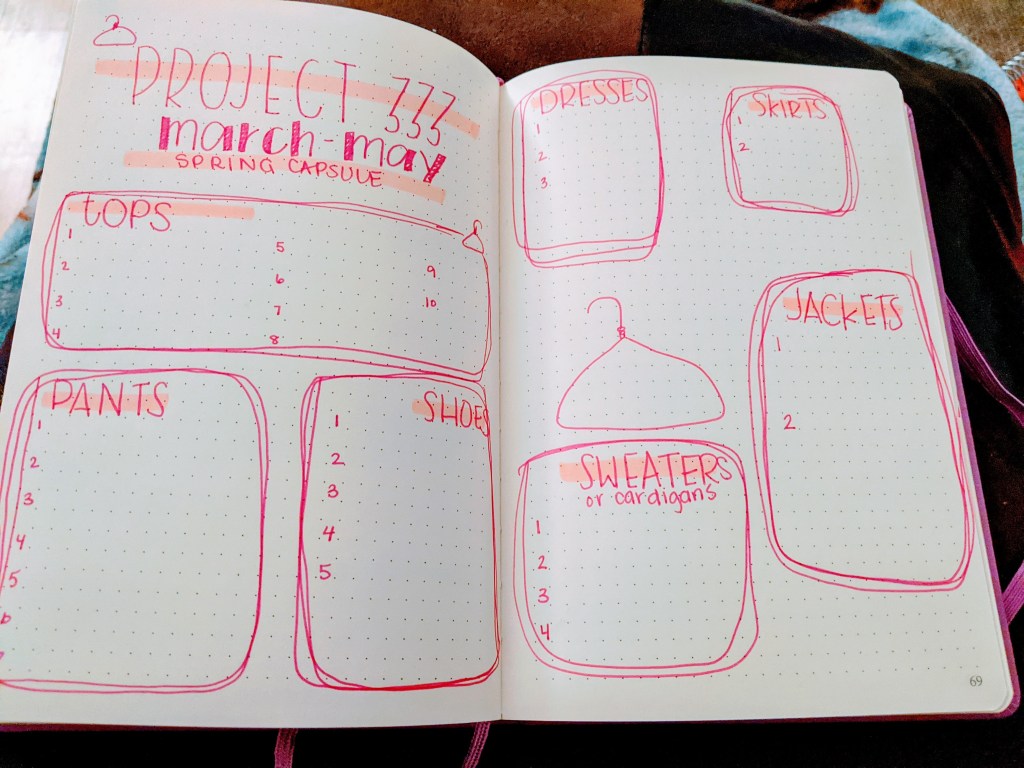 PROJECT 333
march-may
SPRING CAPSULE
tOPS
1
2
3
4
5
6
7
8
9
10
PANTS
1
2
3
4
5
6
SHOES
1
2
3
4
5
DRESSES
1
2
3
SKIRTS
1
2
JACKETS
1
2
SWEATERS
or cardigans
1
2
3
4
69